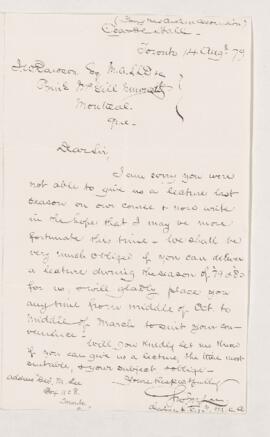 Toronto 14 Augt 79
J W Dawson Esq M.A. LLD &c
Princ McGill University
Montreal
Que
Dear Sir,
I am sorry you were
not able to give us a lecture last
season on our course & now write
in the hope that I may be more
fortunate this time - We shall be
very much obliged if you can deliver
a lecture during the season of 79 & 80
for us, & will gladly place you
anytime from middle of Oct. to
middle of March to suit your con-
venience.
Will you kindly let me know
if you can give us a lecture, the time most
suitable, & your subject & oblige
Yours Respectfully
address M. Lee
Box
Toronto